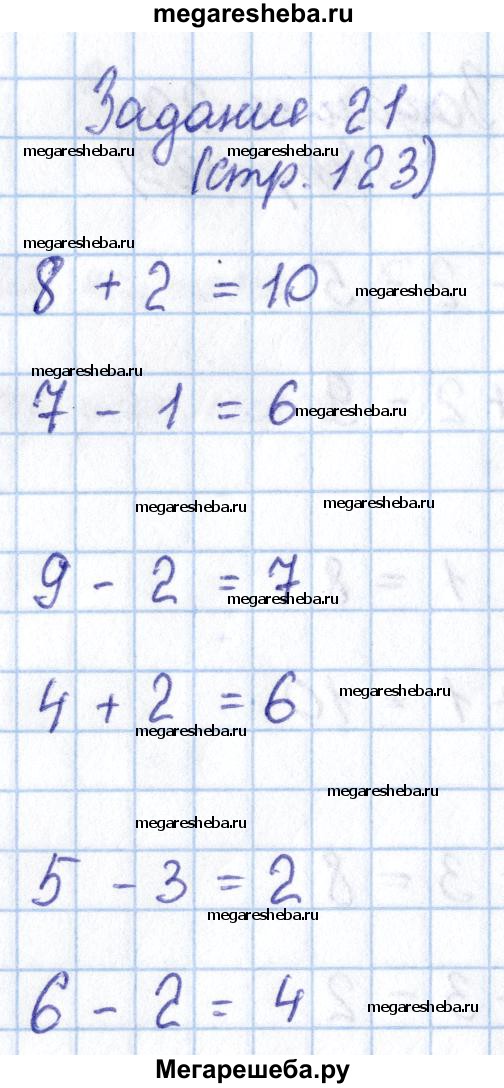 megaresheba.ru
Задание 21
megaresheba.ru megaresheba.ru
(стр. 123)
megaresheba.ru
8 + 2 = 10 megaresheba.ru
megaresheba.ru
7 - 1 = 6 megaresheba.ru
megaresheba.ru megaresheba.ru
9 - 2 = 7
megaresheba.ru
4 + 2 = 6 megaresheba.ru
megaresheba.ru
megaresheba.ru
megaresheba.ru
5 - 3 = 2
megaresheba.ru
6 - 2 = 4 megaresheba.ru
Мегарешеба.ру